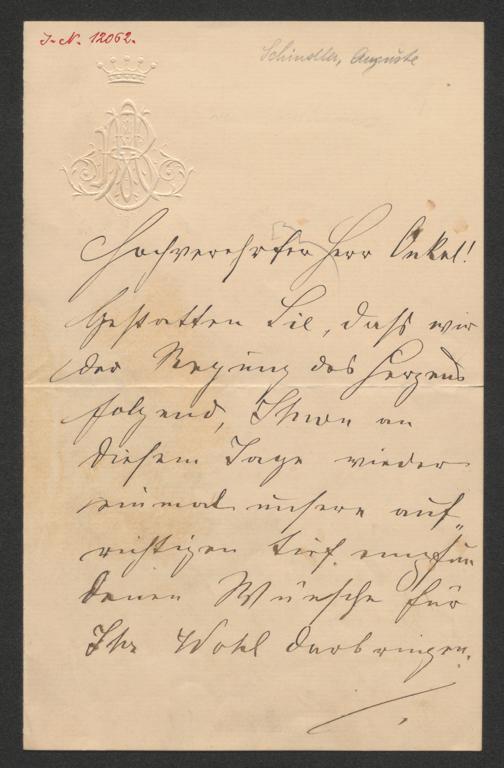 I. N. 12062.
Schindler, Auguste
Hochverehrter Herr Onkel!
Gestatten Sie, dass wir
der Regung des Herzens
folgend, Ihnen an
diesem Tage wieder
einmal unsere auf„
richtigen tief empfun
denen Wünsche für
Ihr Wohl darbringen.